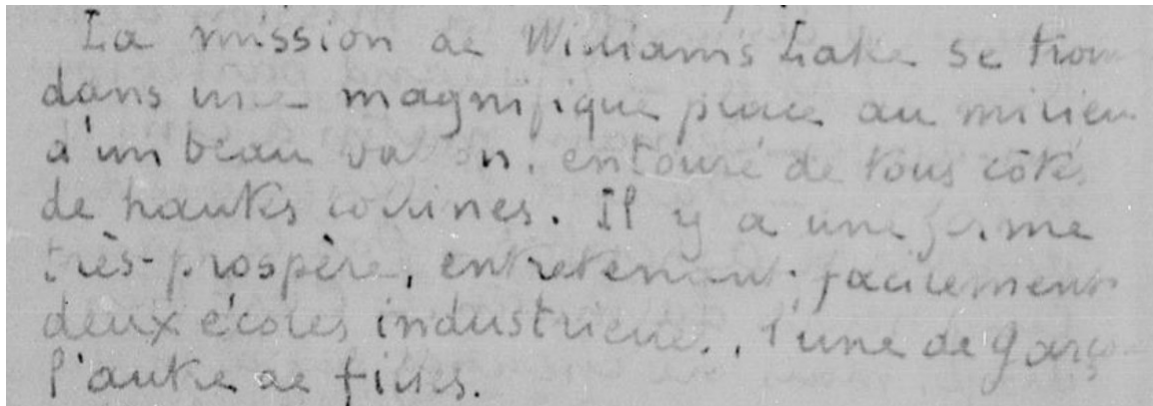 La mission de Williams Lake se trouve
dans une magnifique place au milieu
d'un beau vallon, entouré de tous côtés
de hautes collines. Il y a une ferme
très-prospère, entretenant facilement
deux écoles industrielles, l'une de garçons
l'autre de filles.